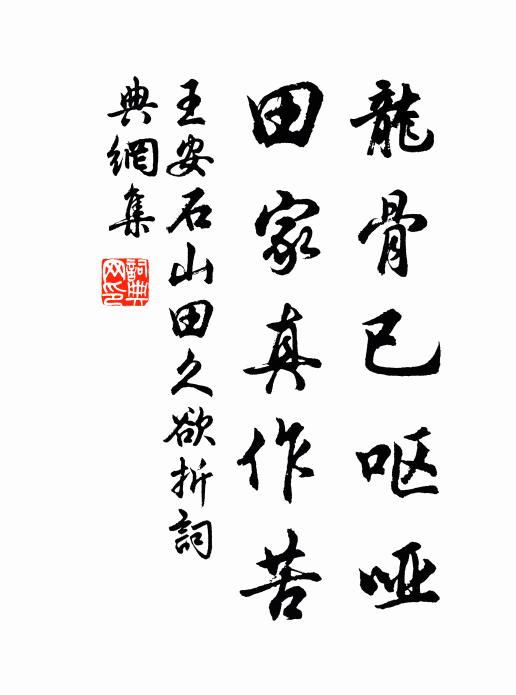 龍骨已呕哑
田家真作苦
王安石山田久欲折詞
典網集
詞典
网印